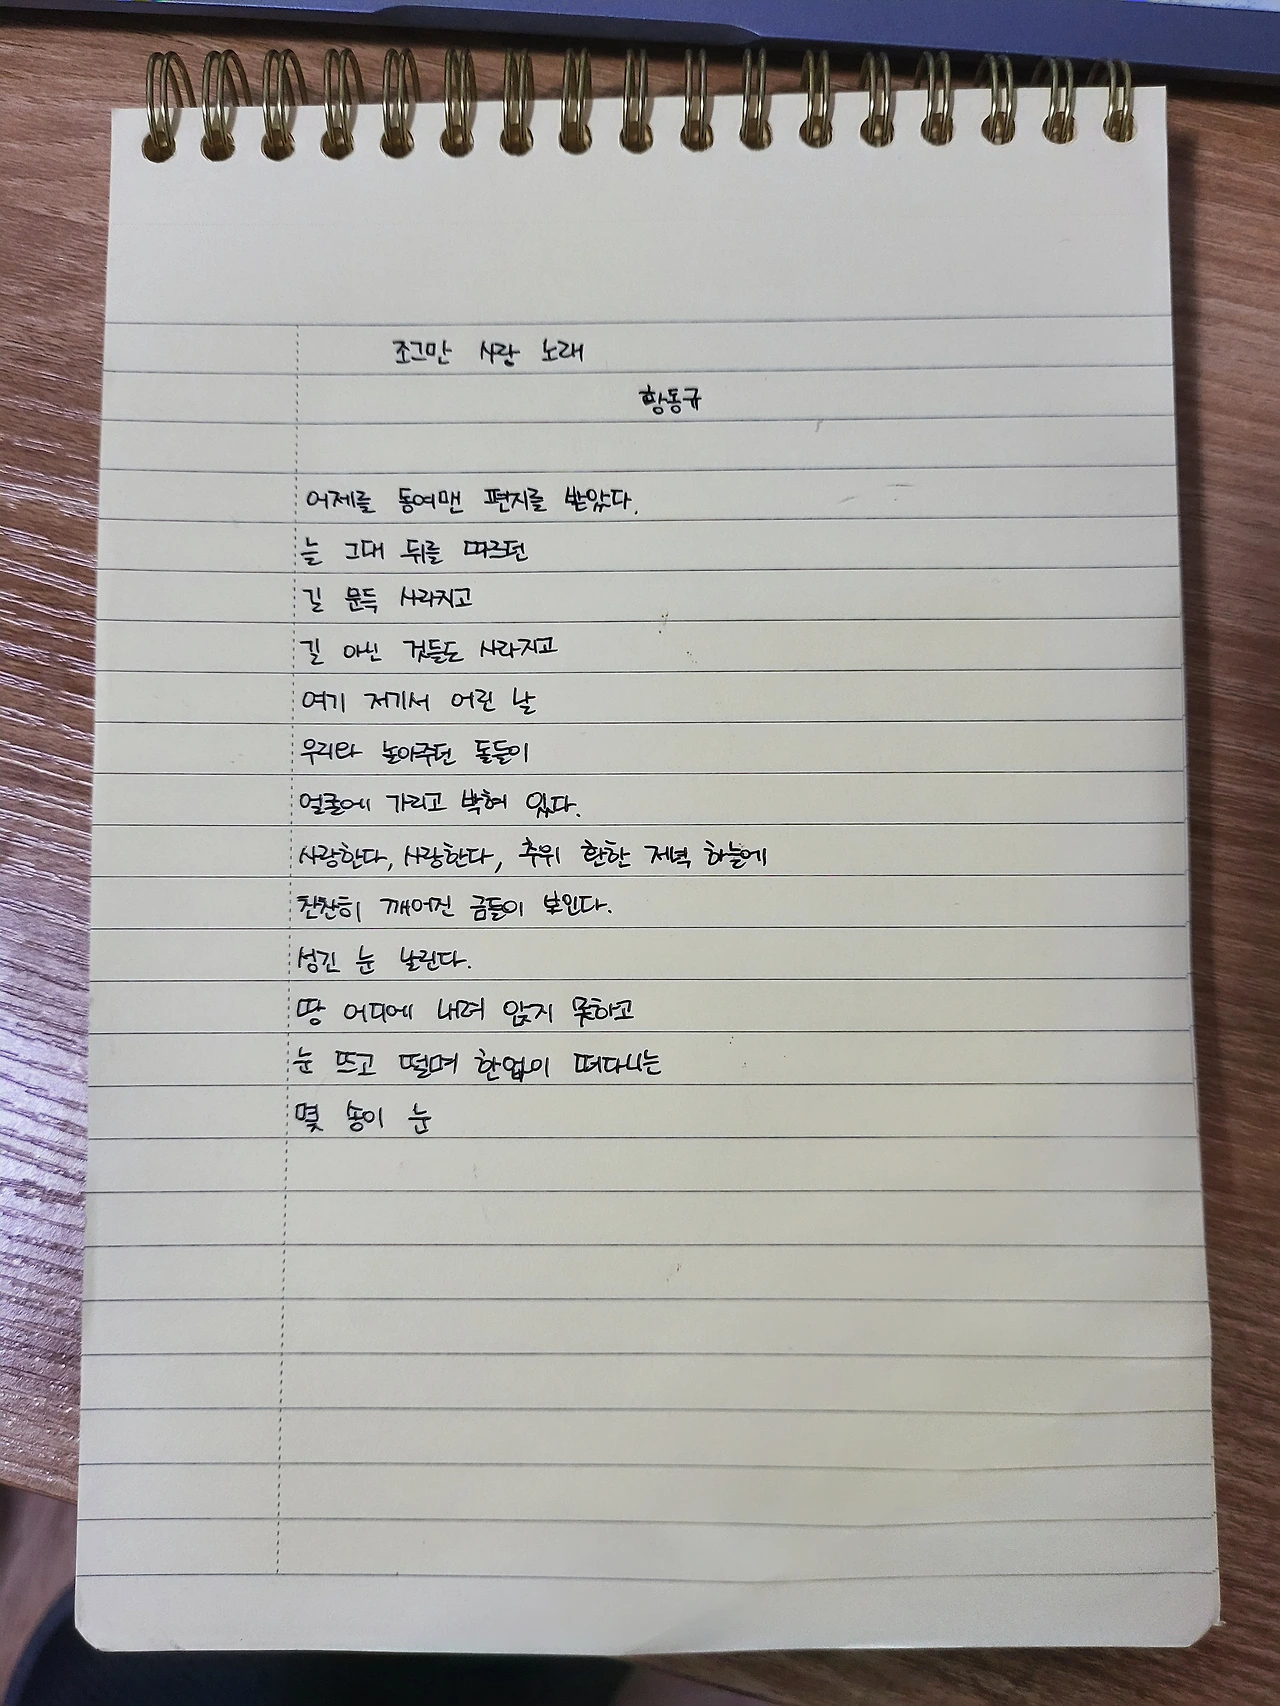 조그만 사랑 노래
황동규
어제를 동여맨 편지를 받았다.
늘 그대 뒤를 따르던
길 문득 사라지고
길 아닌 것들도 사라지고
여기 저기서 어린 날
우리와 놀아주던 돌들이
얼굴에 가리고 박혀 있다.
사랑한다, 사랑한다, 추위 환한 저녁 하늘에
찬찬히 깨어진 금들이 보인다.
성긴 눈 날린다.
땅 어디에 내려 앉지 못하고
눈 뜨고 떨며 한없이 떠다니는
몇 송이 눈